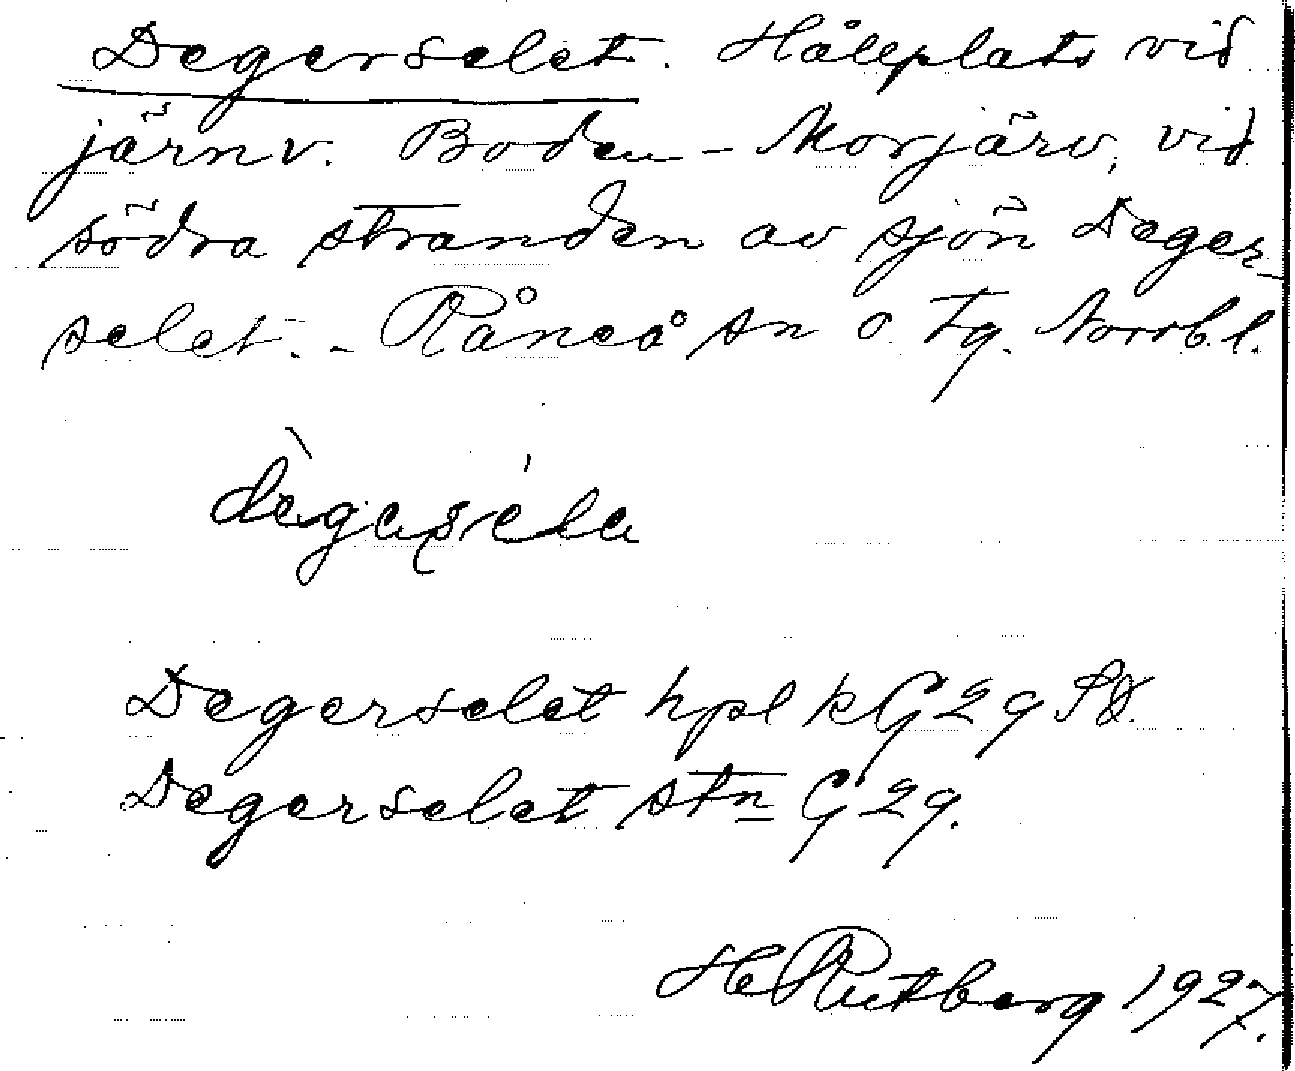 Degerselet. Hållplats vid
järnv. Boden - Morjärv, vid
södra stranden av sjön Deger-
selet. - Råneå sn o. tg. Norrb. l.
Degerselet hpl k G 29
Degerselet stn G 29.
H Rutberg 1927.